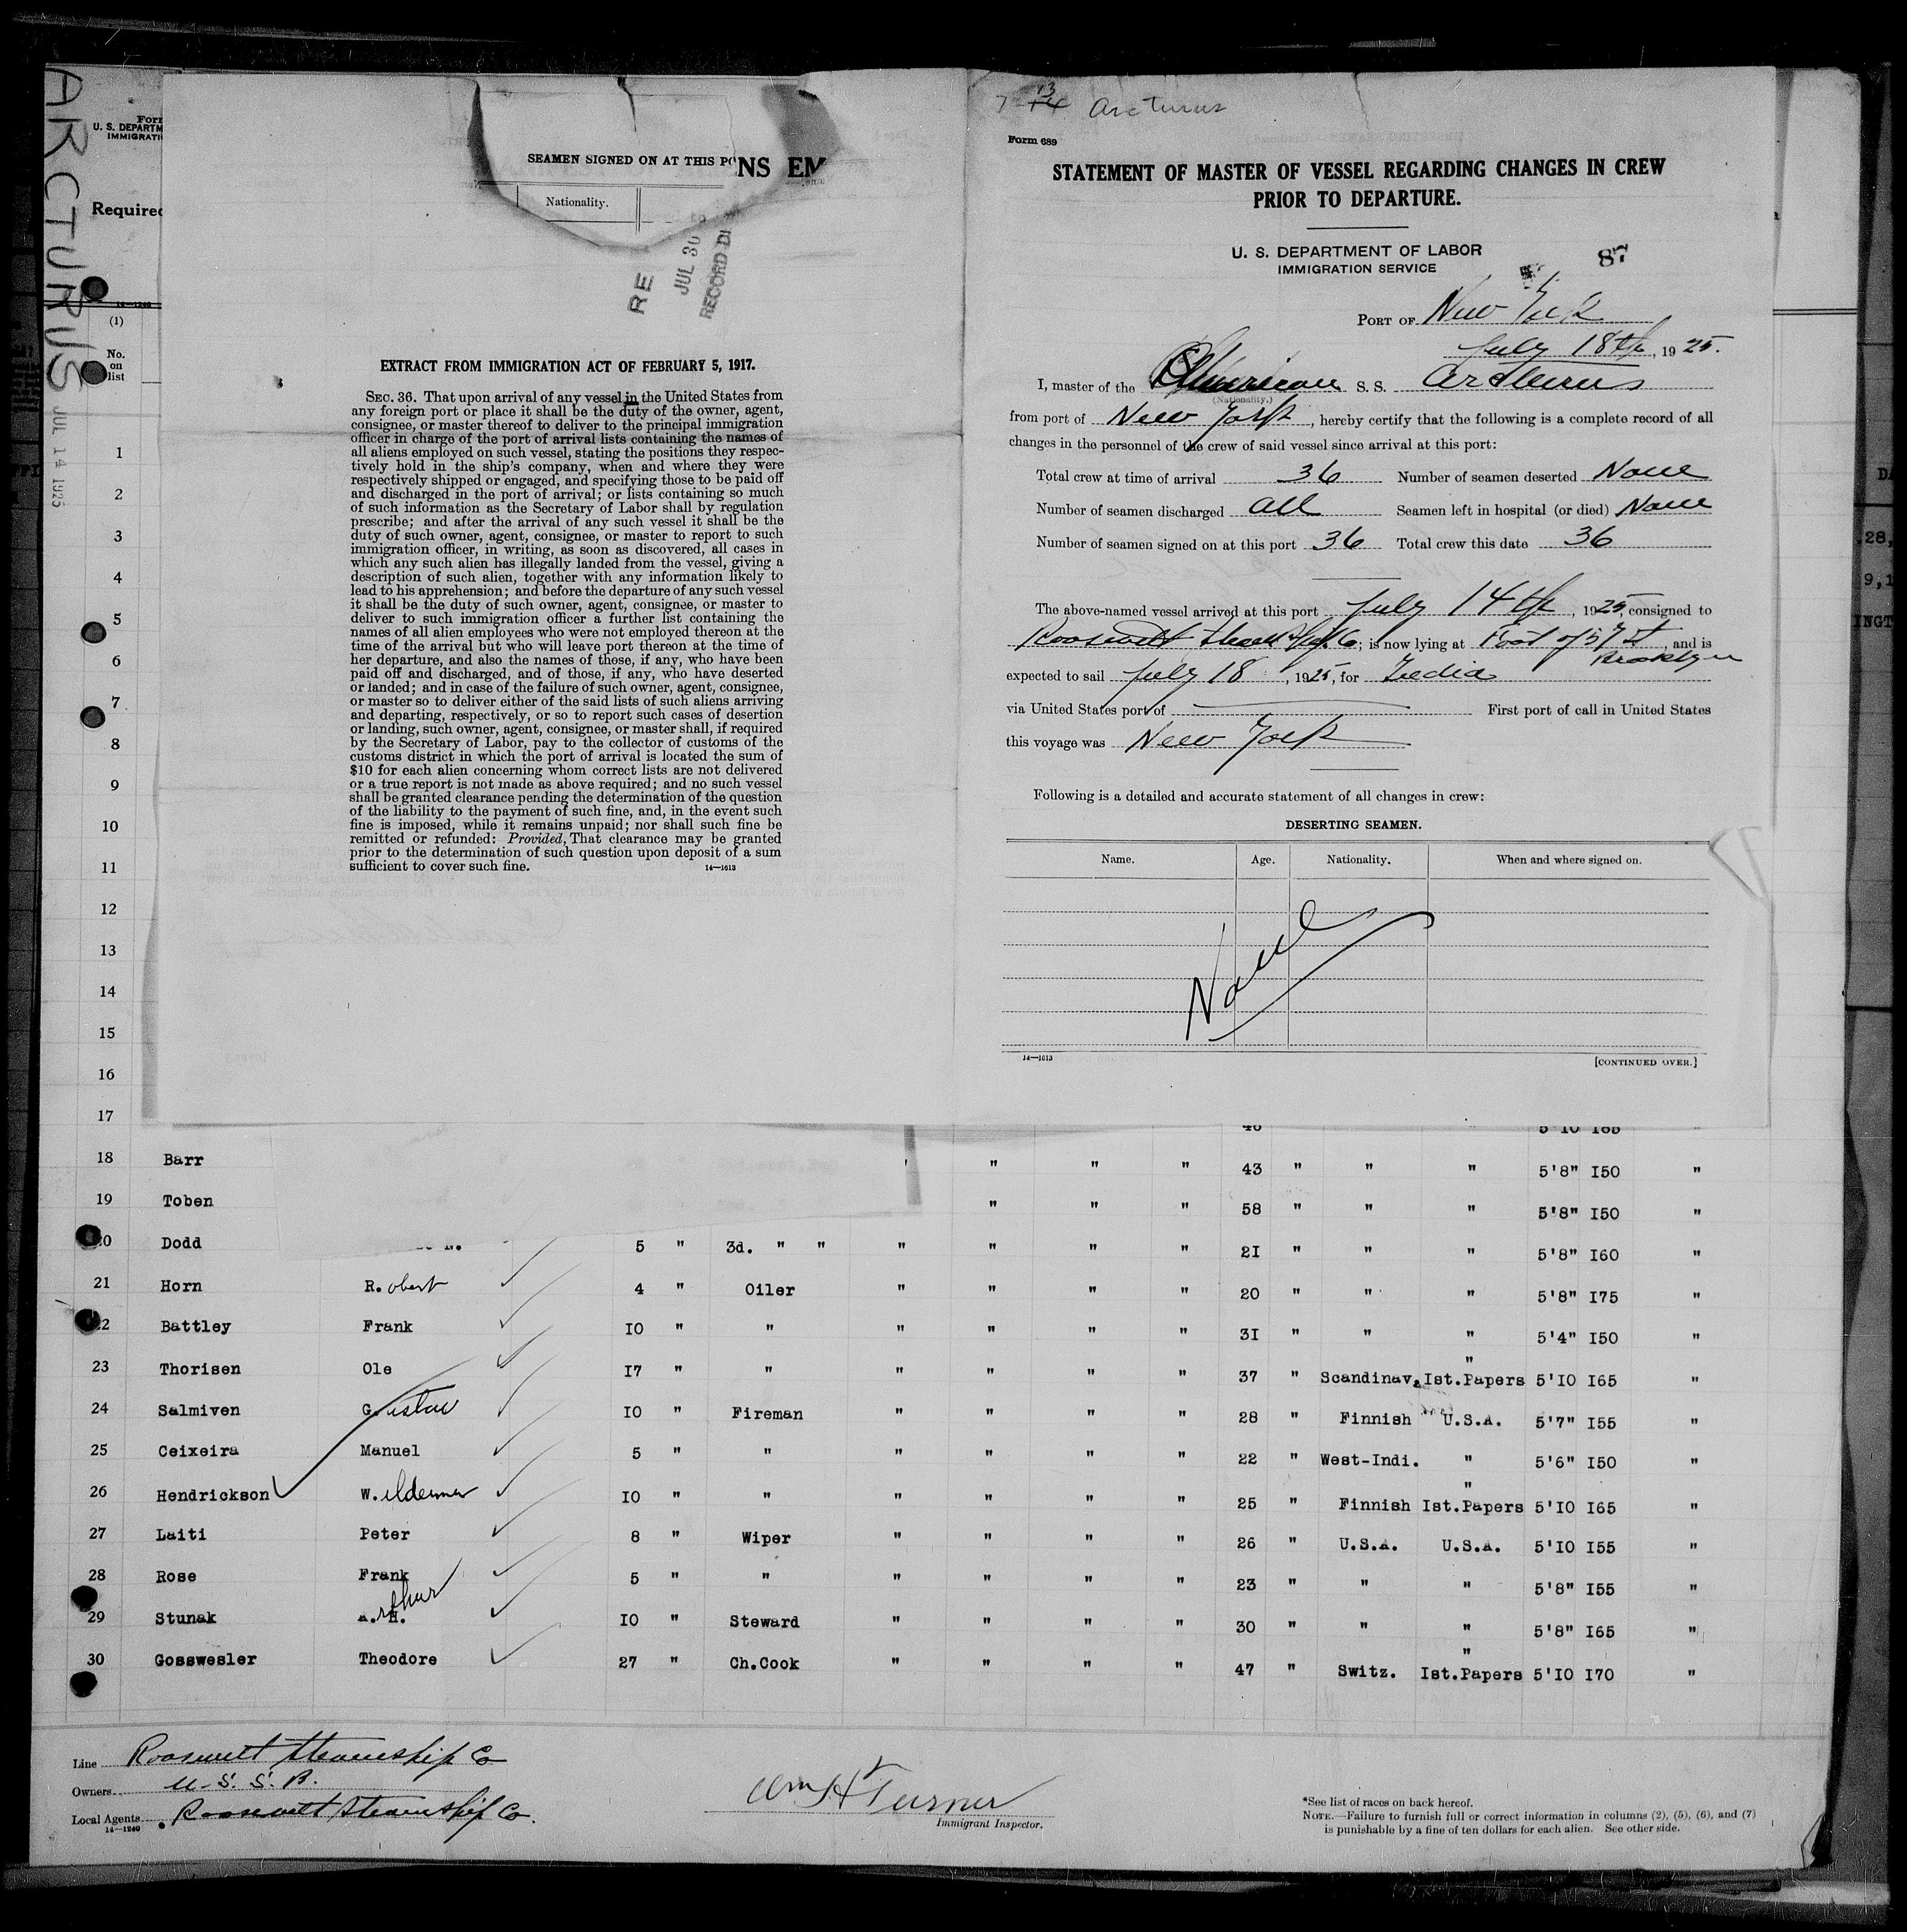 ARCTURUS
JUL 14 1925
Form
U. S. DEPARTM
IMMIGRATI
Required
14—1240
(1)
No.
on
list
SEAMEN SIGNED ON AT THIS PO
NS EM
Nationality.
RE
JUL 30
RECORD DI
EXTRACT FROM IMMIGRATION ACT OF FEBRUARY 5, 1917.
SEC. 36. That upon arrival of any vessel in the United States from
any foreign port or place it shall be the duty of the owner, agent,
consignee, or master thereof to deliver to the principal immigration
officer in charge of the port of arrival lists containing the names of
all aliens employed on such vessel, stating the positions they respec-
tively hold in the ship's company, when and where they were
respectively shipped or engaged, and specifying those to be paid off
and discharged in the port of arrival; or lists containing so much
of such information as the Secretary of Labor shall by regulation
prescribe; and after the arrival of any such vessel it shall be the
duty of such owner, agent, consignee, or master to report to such
immigration officer, in writing, as soon as discovered, all cases in
which any such alien has illegally landed from the vessel, giving a
description of such alien, together with any information likely to
lead to his apprehension; and before the departure of any such vessel
it shall be the duty of such owner, agent, consignee, or master to
deliver to such immigration officer a further list containing the
names of all alien employees who were not employed thereon at the
time of the arrival but who will leave port thereon at the time of
her departure, and also the names of those, if any, who have been
paid off and discharged, and of those, if any, who have deserted
or landed; and in case of the failure of such owner, agent, consignee,
or master so to deliver either of the said lists of such aliens arriving
and departing, respectively, or so to report such cases of desertion
or landing, such owner, agent, consignee, or master shall, if required
by the Secretary of Labor, pay to the collector of customs of the
customs district in which the port of arrival is located the sum of
$10 for each alien concerning whom correct lists are not delivered
or a true report is not made as above required; and no such vessel
shall be granted clearance pending the determination of the question
of the liability to the payment of such fine, and, in the event such
fine is imposed, while it remains unpaid; nor shall such fine be
remitted or refunded: Provided, That clearance may be granted
prior to the determination of such question upon deposit of a sum
sufficient to cover such fine.
14—1613
7 13 14 Arcturus
Form 689
STATEMENT OF MASTER OF VESSEL REGARDING CHANGES IN CREW
PRIOR TO DEPARTURE.
U. S. DEPARTMENT OF LABOR
IMMIGRATION SERVICE
87
PORT OF New York
July 18th, 1925.
I, master of the American S. S. Arcturus
(Nationality.)
from port of New York, hereby certify that the following is a complete record of all
changes in the personnel of the crew of said vessel since arrival at this port:
Total crew at time of arrival 36 Number of seamen deserted None
Number of seamen discharged All Seamen left in hospital (or died) None
Number of seamen signed on at this port 36 Total crew this date 36
The above-named vessel arrived at this port July 14th, 1925, consigned to
Roosevelt; is now lying at Foot of 57 St Brooklyn, and is
expected to sail July 18, 1925, for India
via United States port of First port of call in United States
this voyage was New York
Following is a detailed and accurate statement of all changes in crew:
DESERTING SEAMEN.
Name. Age. Nationality. When and where signed on.
None
14—1613 [CONTINUED OVER.]
DA
.28,
9,1
INGT
1
2
3
4
5
6
7
8
9
10
11
12
13
14
15
16
17 5'10 I65
18 Barr " " " 43 " " " 5'8" I50 "
19 Toben " " " 58 " " " 5'8" I50 "
20 Dodd 5 " 3d. " " " " " " 2I " " " 5'8" I60 "
21 Horn R.obert 4 " Oiler " " " " 20 " " " 5'8" I75 "
22 Battley Frank I0 " " " " " " 3I " " " 5'4" I50 "
23 Thorisen Ole I7 " " " " " " 37 " Scandinav. " Ist.Papers 5'I0 I65 "
24 Salmiven Gustav I0 " Fireman " " " " 28 " Finnish U.S.A. 5'7" I55 "
25 Ceixeira Manuel 5 " " " " " " 22 " West-Indi. " 5'6" I50 "
26 Hendrickson W. I0 " " " " " " 25 " Finnish " Ist.Papers 5'I0 I65 "
27 Laiti Peter 8 " Wiper " " " " 26 " U.S.A. U.S.A. 5'I0 I55 "
28 Rose Frank 5 " " " " " " 23 " " " 5'8" I55 "
29 Stunak A.rthur H. I0 " Steward " " " " 30 " " " 5'8" I65 "
30 Gosswesler Theodore 27 " Ch.Cook " " " " 47 " Switz. " Ist.Papers 5'I0 I70 "
Line Roosevelt Steamship Co
Owners U. S. S. B.
Local Agents Roosevelt Steamship Co.
14—1240
Wm H Turner
Immigrant Inspector.
*See list of races on back hereof.
NOTE.—Failure to furnish full or correct information in columns (2), (5), (6), and (7)
is punishable by a fine of ten dollars for each alien. See other side.